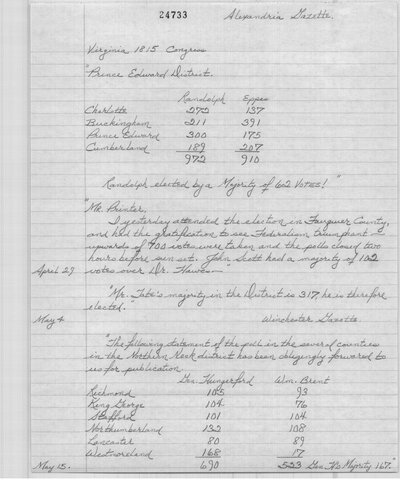 24733 Alexandria Gazette.
Virginia 1815 Congress
"Prince Edward District.
Randolph Eppes
Charlotte 272 137
Buckingham 211 391
Prince Edward 300 175
Cumberland 189 207
972 910
Randolph elected by a Majority of 62 VOTES!"
"Mr. Printer,
I yesterday attended the election in Fauquier County,
and had the gratification to see Federalism triumphant -
upwards of 900 votes were taken and the polls closed two
hours before sun set. John Scott had a majority of 102
April 29 votes over Dr. Hawes—"
"Mr. Tate's majority in the District is 317, he is therefore
elected."
May 4 Winchester Gazette.
"The following statement of the polls in the several counties
in the Northern Neck district has been obligingly forwarded to
us for publication
Gen. Hungerford Wm. Brent
Richmond 105 93
King George 104 76
Stafford 101 104
Northumberland 132 108
Lancaster 80 89
Westmoreland 168 17
May 15. 690 523 Gen. H's Majority 167."